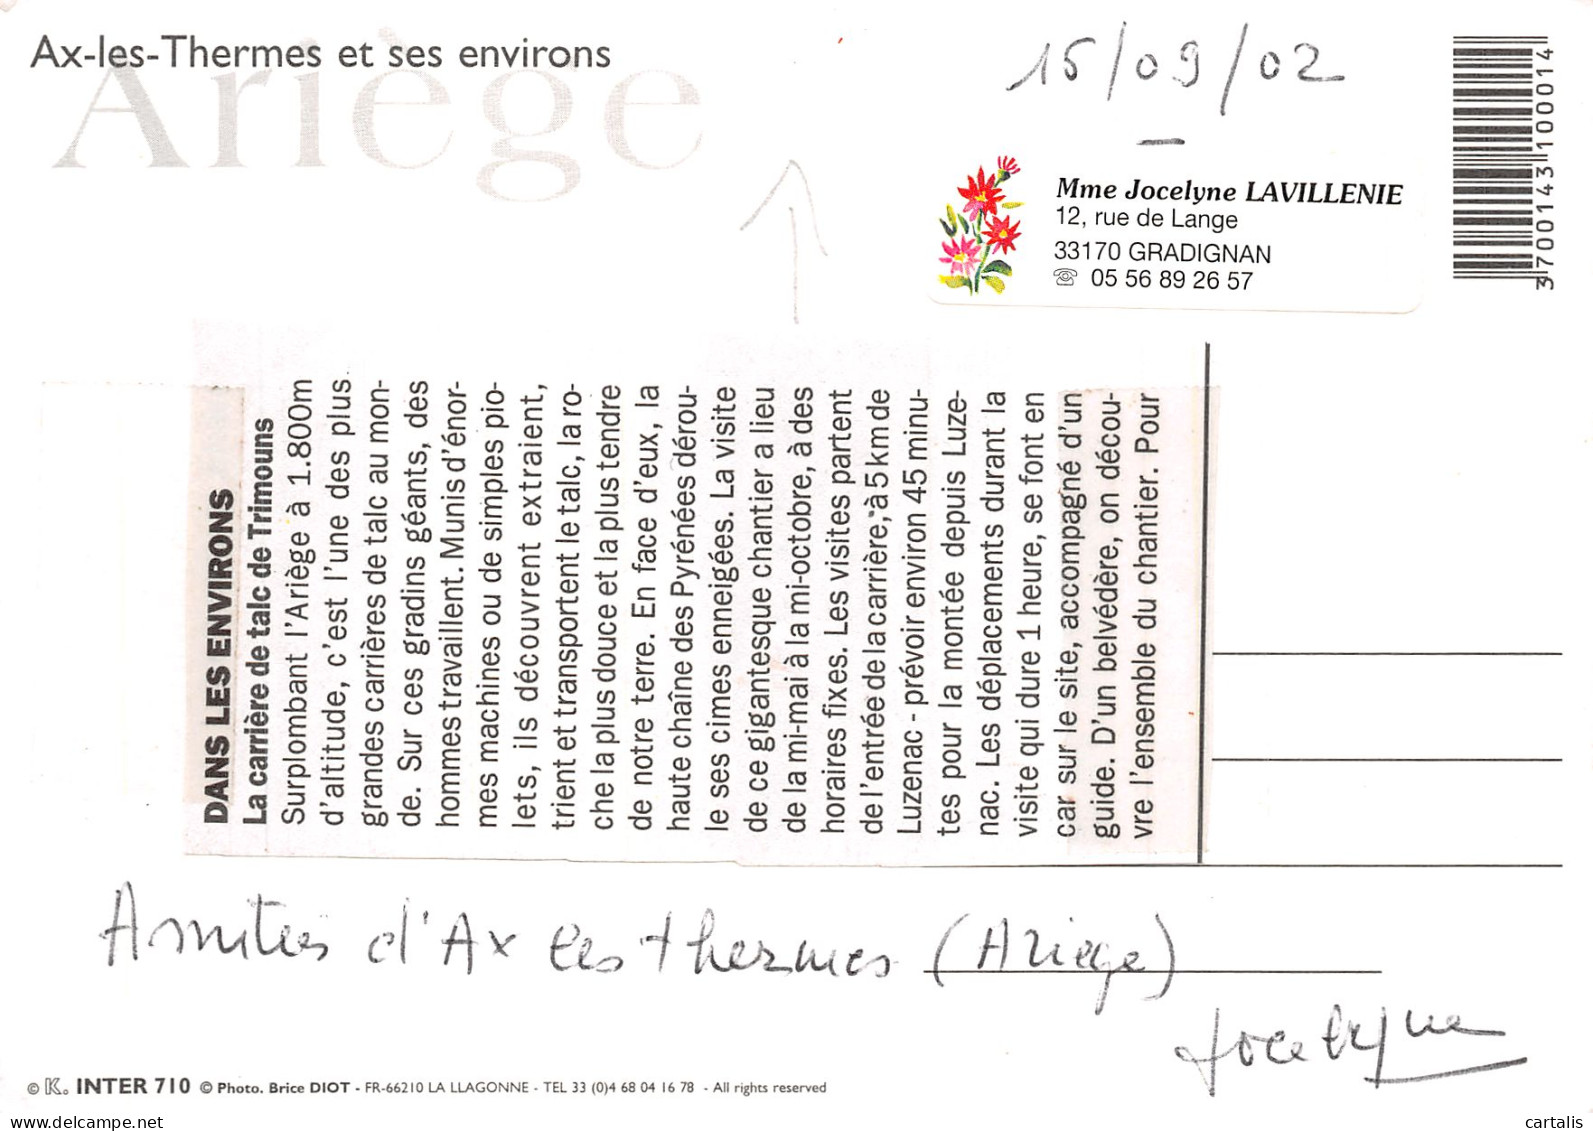 Ax-les-Thermes et ses environs
Ariège
15/09/02
Mme Jocelyne LAVILLENIE
12, rue de Lange
33170 GRADIGNAN
☏ 05 56 89 26 57
3700143100014
DANS LES ENVIRONS
La carrière de talc de Trimouns
Surplombant l'Ariège à 1.800m
d'altitude, c'est l'une des plus
grandes carrières de talc au mon-
de. Sur ces gradins géants, des
hommes travaillent. Munis d'énor-
mes machines ou de simples pio-
lets, ils découvrent extraient,
trient et transportent le talc, la ro-
che la plus douce et la plus tendre
de notre terre. En face d'eux, la
haute chaîne des Pyrénées dérou-
le ses cimes enneigées. La visite
de ce gigantesque chantier a lieu
de la mi-mai à la mi-octobre, à des
horaires fixes. Les visites partent
de l'entrée de la carrière, à 5 km de
Luzenac - prévoir environ 45 minu-
tes pour la montée depuis Luze-
nac. Les déplacements durant la
visite qui dure 1 heure, se font en
car sur le site, accompagné d'un
guide. D'un belvédère, on décou-
vre l'ensemble du chantier. Pour
Amitiés d'Ax les thermes (Ariege)
Jocelyne
© K. INTER 710 © Photo. Brice DIOT - FR-66210 LA LLAGONNE - TEL 33 (0)4 68 04 16 78 - All rights reserved
delcampe.net
cartalis